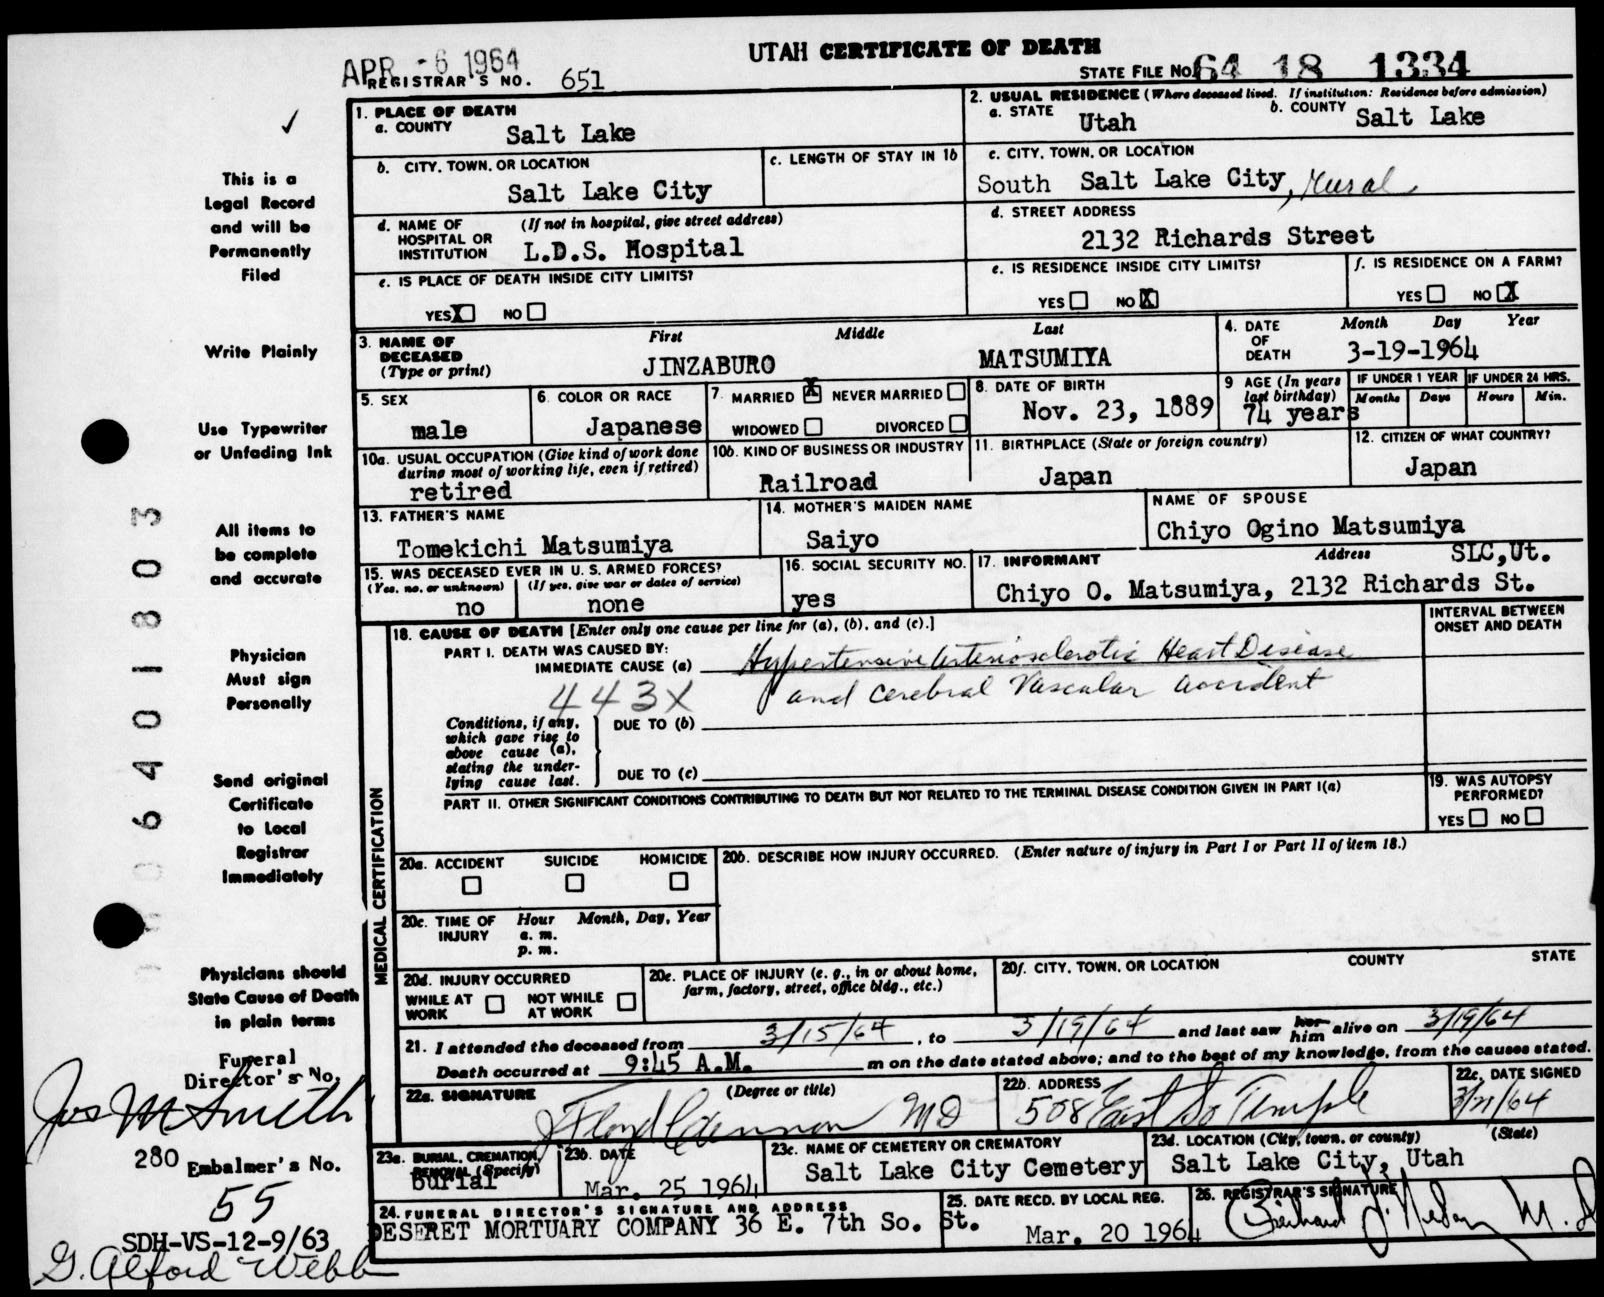 UTAH CERTIFICATE OF DEATH
APR -6 1964
REGISTRAR'S NO. 651
STATE FILE NO. 64 18 1334
1. PLACE OF DEATH
a. COUNTY Salt Lake
2. USUAL RESIDENCE (Where deceased lived. If institution: Residence before admission)
a. STATE Utah b. COUNTY Salt Lake
b. CITY, TOWN, OR LOCATION Salt Lake City
c. LENGTH OF STAY IN 1b
c. CITY, TOWN, OR LOCATION
South Salt Lake City, rural
d. NAME OF HOSPITAL OR INSTITUTION (If not in hospital, give street address)
L.D.S. Hospital
d. STREET ADDRESS
2132 Richards Street
e. IS PLACE OF DEATH INSIDE CITY LIMITS?
YES X NO
e. IS RESIDENCE INSIDE CITY LIMITS?
YES NO X
f. IS RESIDENCE ON A FARM?
YES NO X
3. NAME OF DECEASED (Type or print)
First Middle Last
JINZABURO MATSUMIYA
4. DATE OF DEATH Month Day Year
3-19-1964
5. SEX
male
6. COLOR OR RACE
Japanese
7. MARRIED X NEVER MARRIED
WIDOWED DIVORCED
8. DATE OF BIRTH
Nov. 23, 1889
9 AGE (In years last birthday)
74 years
IF UNDER 1 YEAR Months Days
IF UNDER 24 HRS. Hours Min.
10a. USUAL OCCUPATION (Give kind of work done during most of working life, even if retired)
retired
10b. KIND OF BUSINESS OR INDUSTRY
Railroad
11. BIRTHPLACE (State or foreign country)
Japan
12. CITIZEN OF WHAT COUNTRY?
Japan
13. FATHER'S NAME
Tomekichi Matsumiya
14. MOTHER'S MAIDEN NAME
Saiyo
NAME OF SPOUSE
Chiyo Ogino Matsumiya
15. WAS DECEASED EVER IN U. S. ARMED FORCES?
(Yes, no, or unknown) (If yes, give war or dates of service)
no none
16. SOCIAL SECURITY NO.
yes
17. INFORMANT Address SLC,Ut.
Chiyo O. Matsumiya, 2132 Richards St.
18. CAUSE OF DEATH [Enter only one cause per line for (a), (b), and (c).]
INTERVAL BETWEEN ONSET AND DEATH
PART I. DEATH WAS CAUSED BY:
IMMEDIATE CAUSE (a) Hypertensive Arteriosclerotic Heart Disease
and Cerebral Vascular accident
443X
Conditions, if any, which gave rise to above cause (a), stating the underlying cause last.
DUE TO (b)
DUE TO (c)
PART II. OTHER SIGNIFICANT CONDITIONS CONTRIBUTING TO DEATH BUT NOT RELATED TO THE TERMINAL DISEASE CONDITION GIVEN IN PART I(a)
19. WAS AUTOPSY PERFORMED?
YES NO
MEDICAL CERTIFICATION
20a. ACCIDENT SUICIDE HOMICIDE
20b. DESCRIBE HOW INJURY OCCURRED. (Enter nature of injury in Part I or Part II of item 18.)
20c. TIME OF INJURY Hour Month, Day, Year
a. m.
p. m.
20d. INJURY OCCURRED
WHILE AT WORK NOT WHILE AT WORK
20e. PLACE OF INJURY (e. g., in or about home, farm, factory, street, office bldg., etc.)
20f. CITY, TOWN, OR LOCATION COUNTY STATE
21. I attended the deceased from 3/15/64, to 3/19/64 and last saw her him alive on 3/19/64
Death occurred at 9:45 A.M. m on the date stated above; and to the best of my knowledge, from the causes stated.
22a. SIGNATURE (Degree or title)
J Floyd Cannon MD
22b. ADDRESS
508 East So Temple
22c. DATE SIGNED
3/21/64
23a. BURIAL, CREMATION, REMOVAL (Specify)
burial
23b. DATE
Mar. 25 1964
23c. NAME OF CEMETERY OR CREMATORY
Salt Lake City Cemetery
23d. LOCATION (City, town, or county) (State)
Salt Lake City, Utah
24. FUNERAL DIRECTOR'S SIGNATURE AND ADDRESS
DESERET MORTUARY COMPANY 36 E. 7th So. St.
25. DATE RECD. BY LOCAL REG.
Mar. 20 1964
26. REGISTRAR'S SIGNATURE
M.D
This is a
Legal Record
and will be
Permanently
Filed
Write Plainly
Use Typewriter
or Unfading Ink
All items to
be complete
and accurate
Physician
Must sign
Personally
Send original
Certificate
to Local
Registrar
Immediately
Physicians should
State Cause of Death
in plain terms
Funeral
Director's No.
Jos M Smith
280
Embalmer's No.
55
SDH-VS-12-9/63
G. Alford Webb
06401803